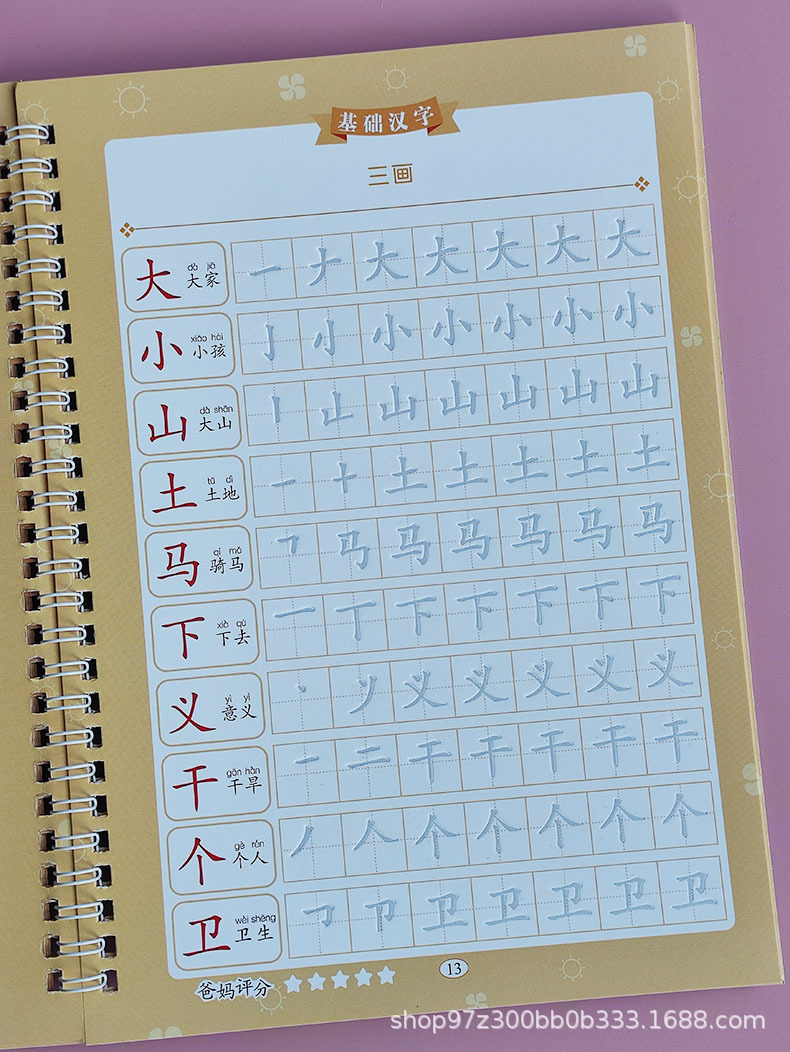 基础汉字
三画
dà jiā
大 大家 一 ナ 大 大 大 大 大
xiǎo hái
小 小孩 亅 小 小 小 小 小
dà shān
山 大山 丨 山 山 山 山 山
tǔ dì
土 土地 一 十 土 土 土 土 土
qí mǎ
马 骑马 ㇕ 马 马 马 马 马 马
xià qù
下 下去 一 丅 下 下 下 下 下
yì yì
义 意义 丶 义 义 义 义 义
gān hàn
干 干旱 一 二 干 干 干 干 干
gè rén
个 个人 丿 人 个 个 个 个 个
wèi shēng
卫 卫生 卩 卫 卫 卫 卫 卫
爸妈评分
13
shop97z300bb0b333.1688.com